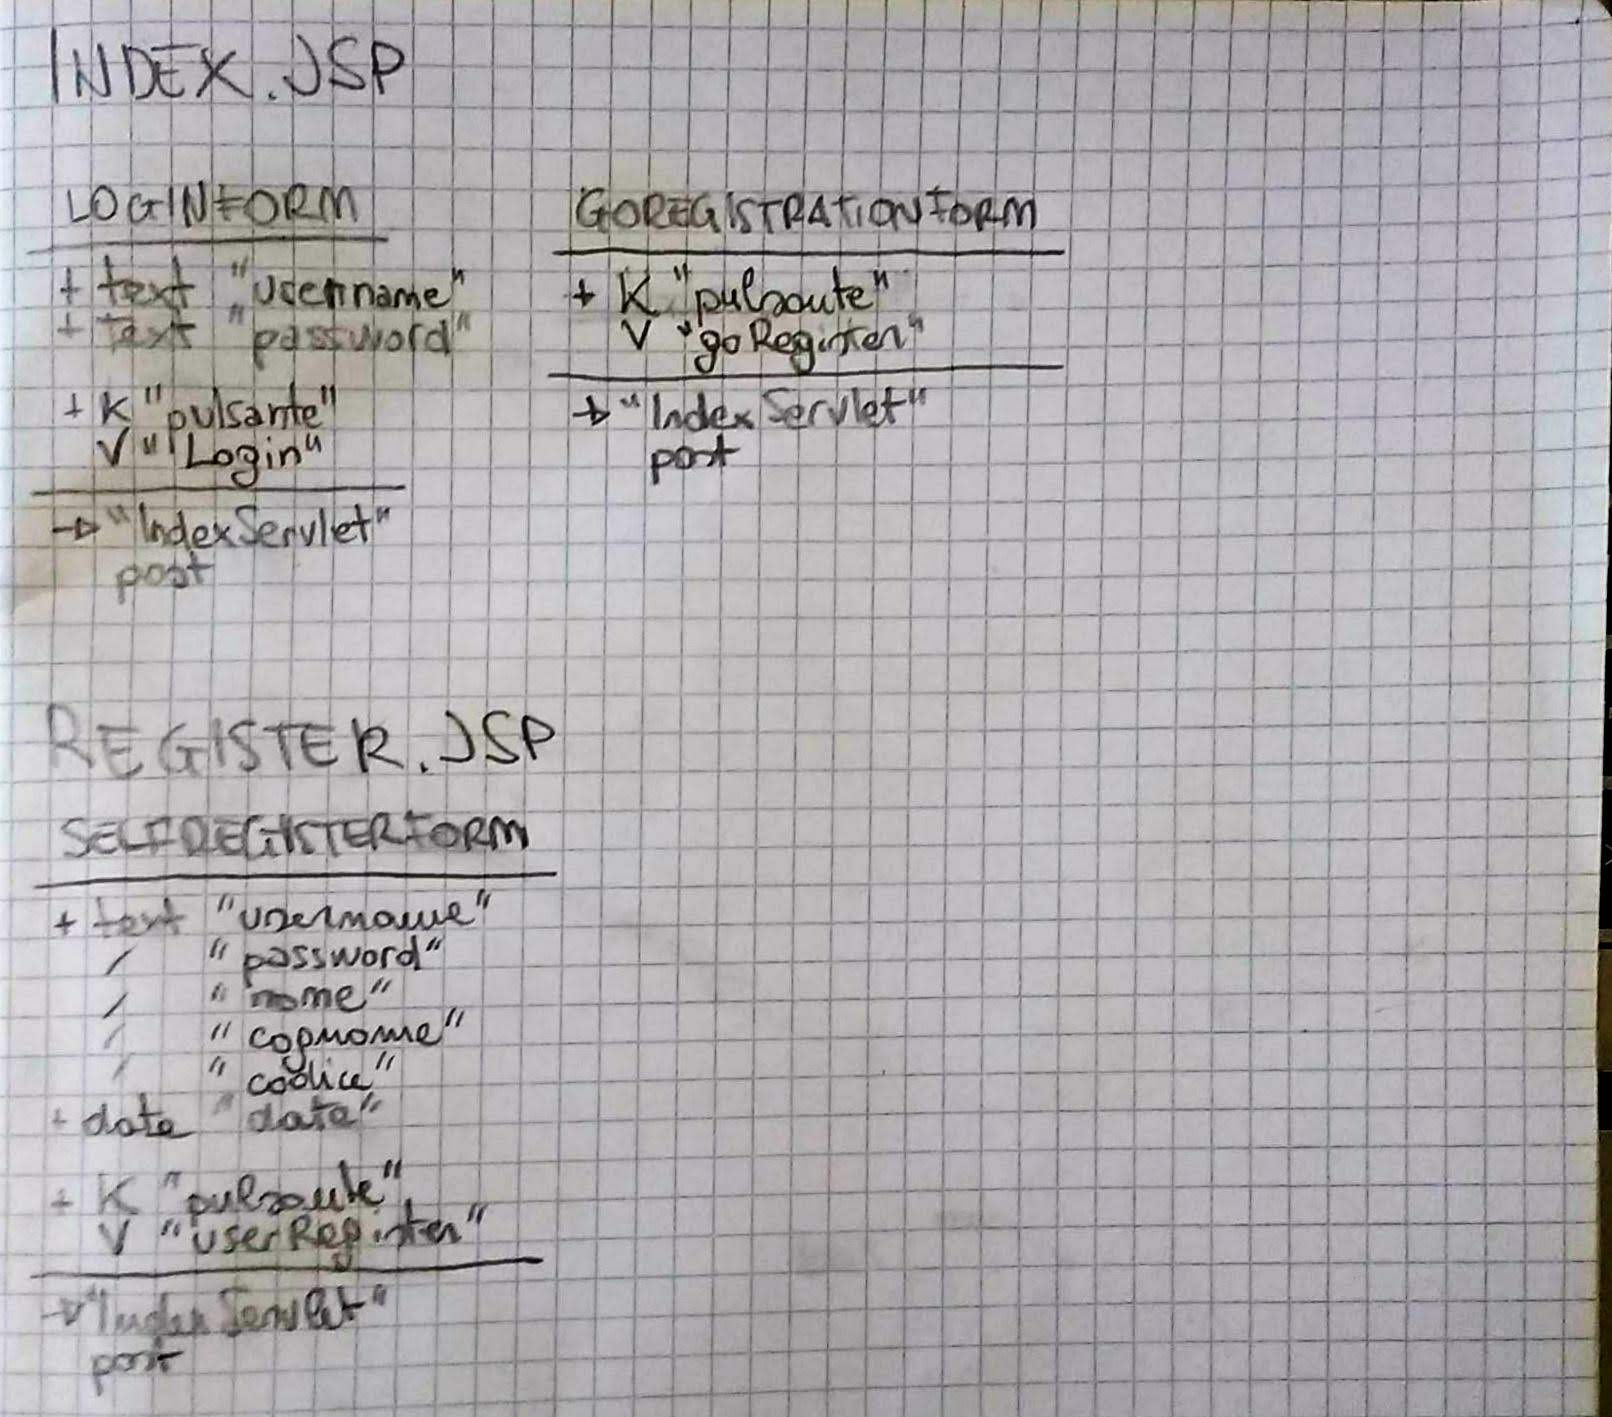 INDEX.JSP
LOGINFORM
+ text "username"
+ text "password"
+ K "pulsante"
V "Login"
→ "IndexServlet"
post
GOREGISTRATIONFORM
+ K "pulsante"
V "goRegister"
→ "IndexServlet"
post
REGISTER.JSP
SELFREGISTERFORM
+ text "username"
/ "password"
/ "nome"
/ "cognome"
/ "codice"
+ date "data"
+ K "pulsante"
V "userRegister"
→ "IndexServlet"
post